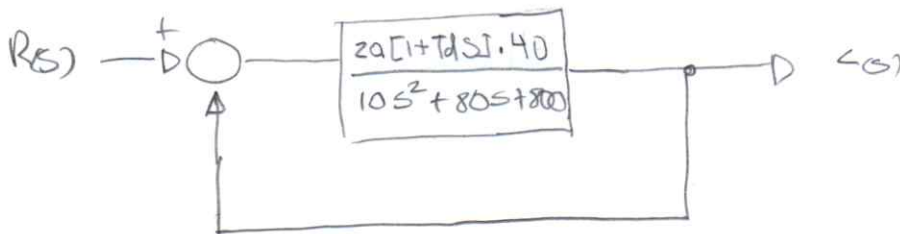 +
R(s)
20[1+TdS].40
10S²+80S+800
C(s)